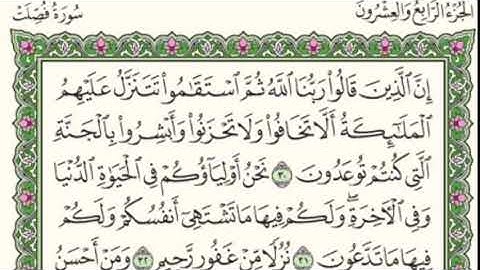 سُورَةُ فُصِّلَتْ الجُزْءُ الرَّابِعُ وَالعِشْرُونَ
إِنَّ ٱلَّذِينَ قَالُوا۟ رَبُّنَا ٱللَّهُ ثُمَّ ٱسْتَقَٰمُوا۟ تَتَنَزَّلُ عَلَيْهِمُ
ٱلْمَلَٰٓئِكَةُ أَلَّا تَخَافُوا۟ وَلَا تَحْزَنُوا۟ وَأَبْشِرُوا۟ بِٱلْجَنَّةِ
ٱلَّتِى كُنتُمْ تُوعَدُونَ ٣٠ نَحْنُ أَوْلِيَآؤُكُمْ فِى ٱلْحَيَوٰةِ ٱلدُّنْيَا
وَفِى ٱلْءَاخِرَةِ ۖ وَلَكُمْ فِيهَا مَا تَشْتَهِىٓ أَنفُسُكُمْ وَلَكُمْ
فِيهَا مَا تَدَّعُونَ ٣١ نُزُلًا مِّنْ غَفُورٍ رَّحِيمٍ ٣٢ وَمَنْ أَحْسَنُ